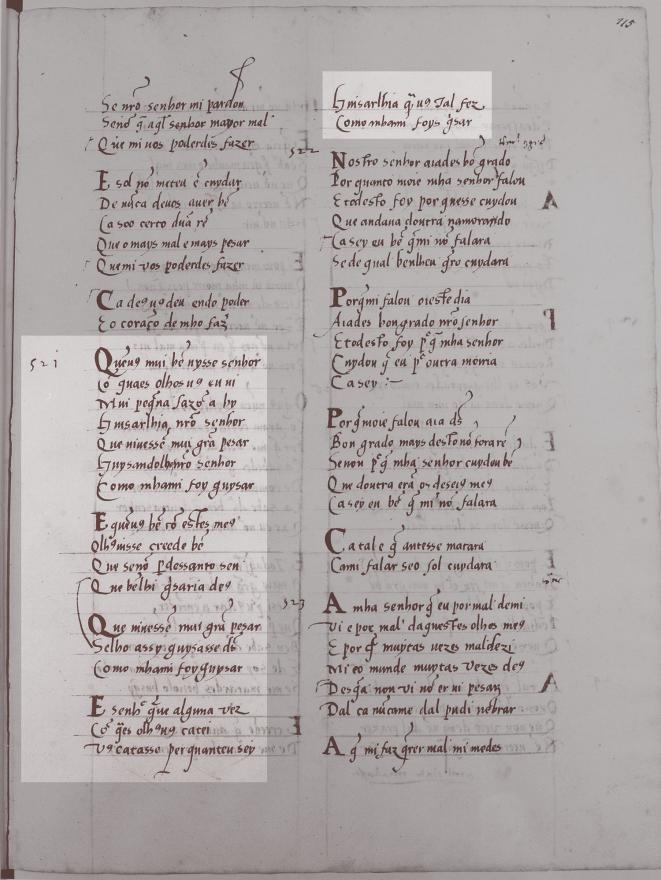 115
Se nr̃o senhor mi pardon
Senõ q̃ aq̃l senhor mayor mal
Que mi uos poderdes fazer
E sol nõ meteu ẽ cuydar
De nũca deuos auer bẽ
Ca soo certo dũa rẽ
Que o mays mal e mays pesar
Quemi uos poderdes fazer
Ca deq9udeu endo poder
Eo coraçõ de mho faz̃
521
Queu9 mui bẽ uysse senhor
Cõ quaes olhos u9 eu ui
Mui peq̃na sazõ a hy
Guisarlhia nr̃o senhor
Que uiuessẽ mui grã pesar
Guysandolhonr̃o senhor
Como mhami foy guysar
E queu9 bẽ cõ estes me9
Olh9uisse creede bẽ
Que senõ perdessanto sen
Que bẽlhi g̃saria de9
Que uiuessẽ mui grã pesar
Selho assy guysasse ds̃
Como mhami foy guysar
E senhr̃ que alguna uez
Cõ q̃es olh9u9 catei
Vꝰ catasse per quanteu sey
Guisarlhia q̃ u9 tal fez
Como mhami foys g̃sar
522
Nostro senhor aiades bõ grado
Por quanto moie mha senhor falou
E todesto foy por quesse cuydou
Que andaua doutra namorando
Ca sey eu bẽ q̃mi nõ falara
Se de qual benlheu q̃ro cuydara
Porq̃mi falou oieste dia
Aiades bon grado nr̃o senhor
E todesto foy p̃q̃ mha senhor
Cuydou q̃ eu p̃ outra moiria
Ca sey :~
Porq̃moie falou aia ds̃
Bon grado mays desto nõ forarẽ
Senon p̃q̃ mha senhor cuydou bẽ
Que doutra erã os deseios me9
Ca sey eu bẽ q̃ mi nõ falara
Ca tal e q̃ antesse matara
Cami falar seo sol cuydara
523
A mha senhor q̃ eu por mal demi
Vi e por mal daquestes olhos me9
E por q̃ muytas uezes maldezi
Mi eo mundo muytas uezes de9
Desq̃a non ui nõ er ui pesar
Dal ca nũcame dal pudi nẽbrar
A q̃ mi faz q̃rer mal mi medes